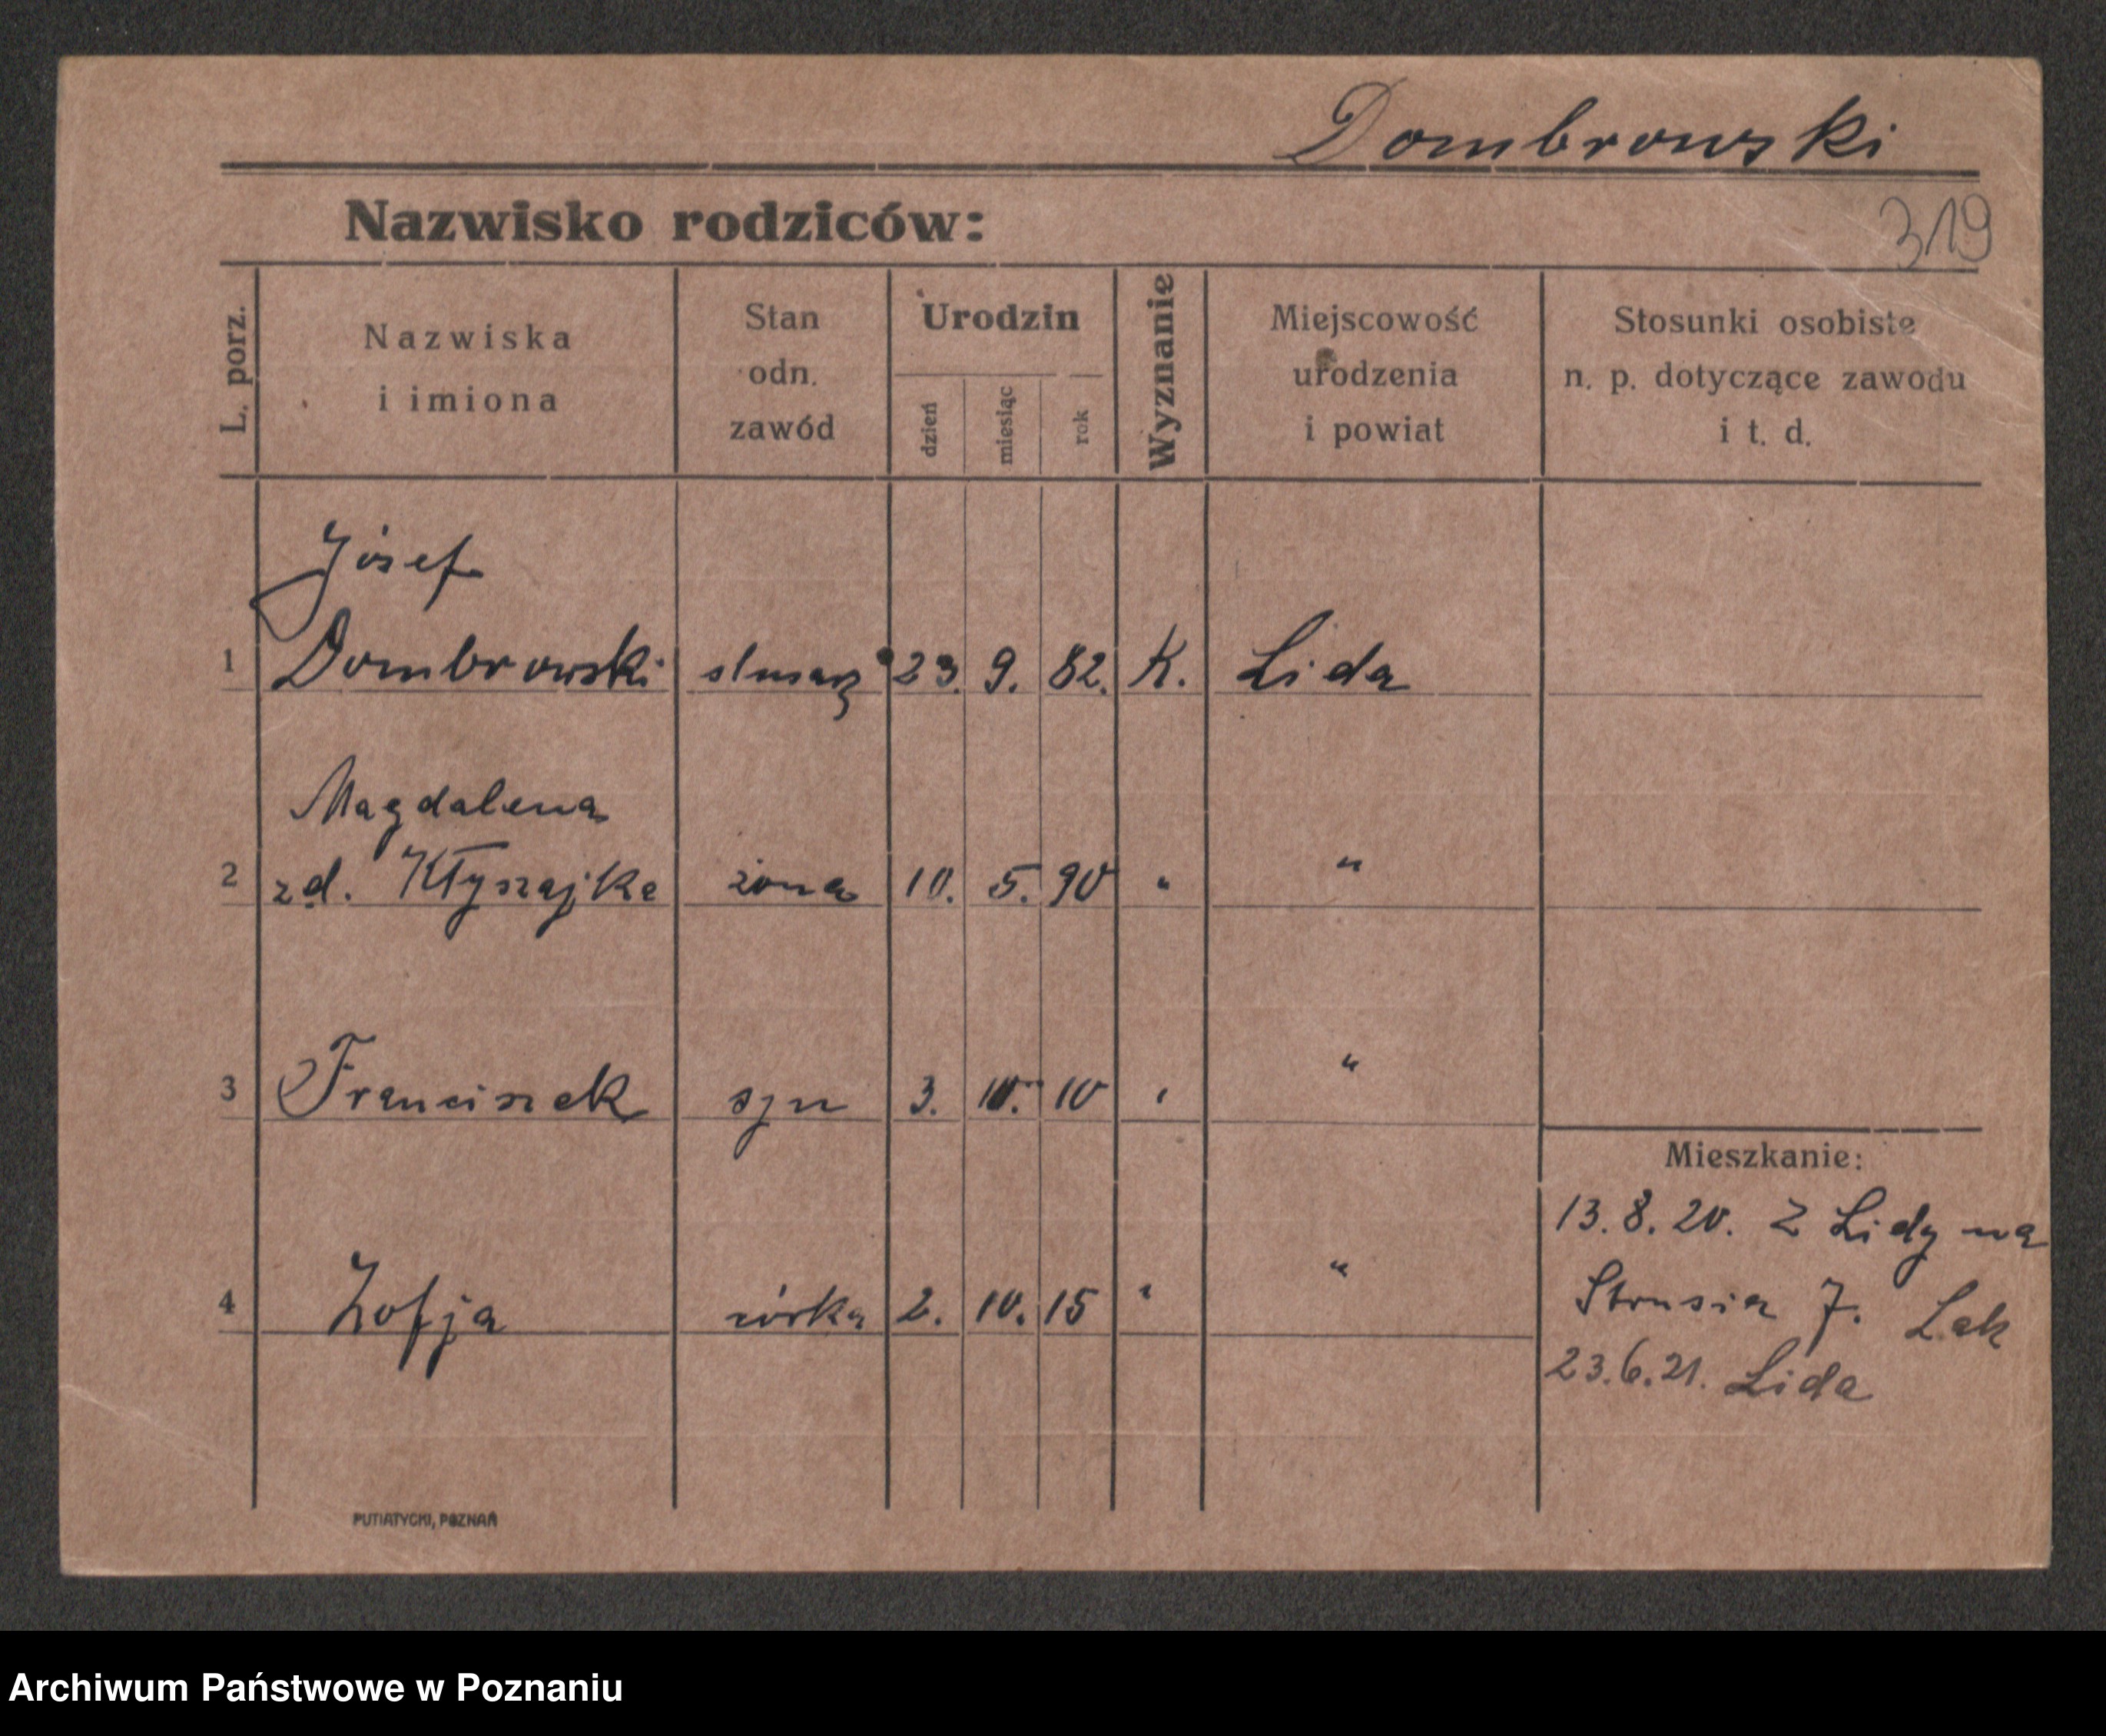 Dombrowski
319
Nazwisko rodziców:
L. porz.
Nazwiska
i imiona
Stan
odn.
zawód
Urodzin
dzień
miesiąc
rok
Wyznanie
Miejscowość
urodzenia
i powiat
Stosunki osobiste
n. p. dotyczące zawodu
i t. d.
Józef
1 Dombrowski slusarz 23. 9. 82. K. Lida
Magdalena
2 zd. Kłyszejko żona 10. 5. 90 " "
3 Franciszek syn 3. 10. 10 " "
4 Zofja córka 2. 10. 15 " "
Mieszkanie:
13. 8. 20. Z Lidy na
Strusia 7. Lek
23.6.21. Lida
PUTIATYCKI, POZNAŃ
Archiwum Państwowe w Poznaniu